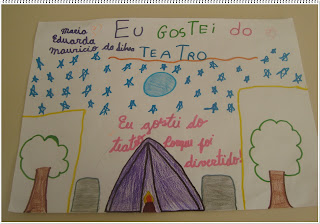 EU GOSTEI do
TEATRO
maria
Eduarda
mauricio da silva
Eu gostei do
teatro Porque foi
divertido!